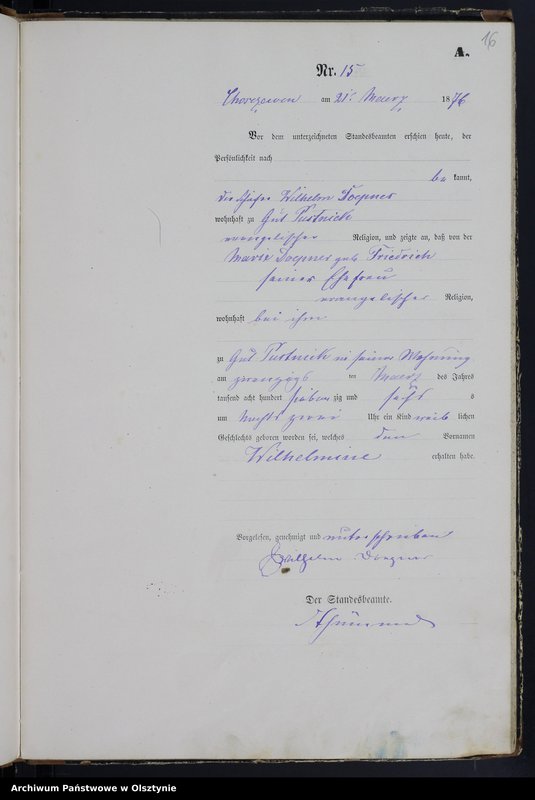 16
A.
Nr. 15
Choszewen am 21. Maerz 1876
Vor dem unterzeichneten Standesbeamten erschien heute, der
Persönlichkeit nach
be kannt,
der Schäfer Wilhelm Doepner
wohnhaft zu Gut Pustnick
evangelischer Religion, und zeigte an, daß von der
Marie Doepner geb. Friedrich
seiner Ehefrau
evangelischer Religion,
wohnhaft bei ihm
zu Gut Pustnick in seiner Wohnung
am zwanzigs ten Maerz des Jahres
tausend acht hundert sieben zig und sechs
um Nachts zwei Uhr ein Kind weib lichen
Geschlechts geboren worden sei, welches den Vornamen
Wilhelmine erhalten habe.
Vorgelesen, genehmigt und unterschrieben
Wilhelm Doepner
Der Standesbeamte.
Archiwum Państwowe w Olsztynie